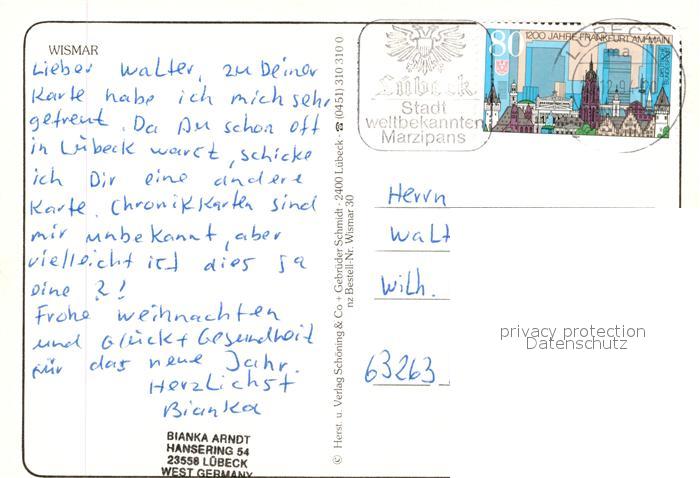 WISMAR
Lieber Walter, zu Deiner
Karte habe ich mich sehr
gefreut. Da Du schon oft
in Lübeck warst, schicke
ich Dir eine andere
Karte. Chronikkarten sind
mir unbekannt, aber
vielleicht ist dies ja
eine ?!
Frohe Weihnachten
und Glück + Gesundheit
für das neue Jahr.
Herzlichst
Bianka
BIANKA ARNDT
HANSERING 54
23558 LÜBECK
WEST GERMANY
© Herst. u. Verlag Schöning & Co + Gebrüder Schmidt · 2400 Lübeck · ☎ (0451) 310 310 0
nz Bestell-Nr. Wismar 30
Lübeck
Stadt
weltbekannten
Marzipans
80
1200 JAHRE FRANKFURT AM MAIN
LÜBECK
ma
Herrn
Walt
Wilh.
63263
privacy protection
Datenschutz